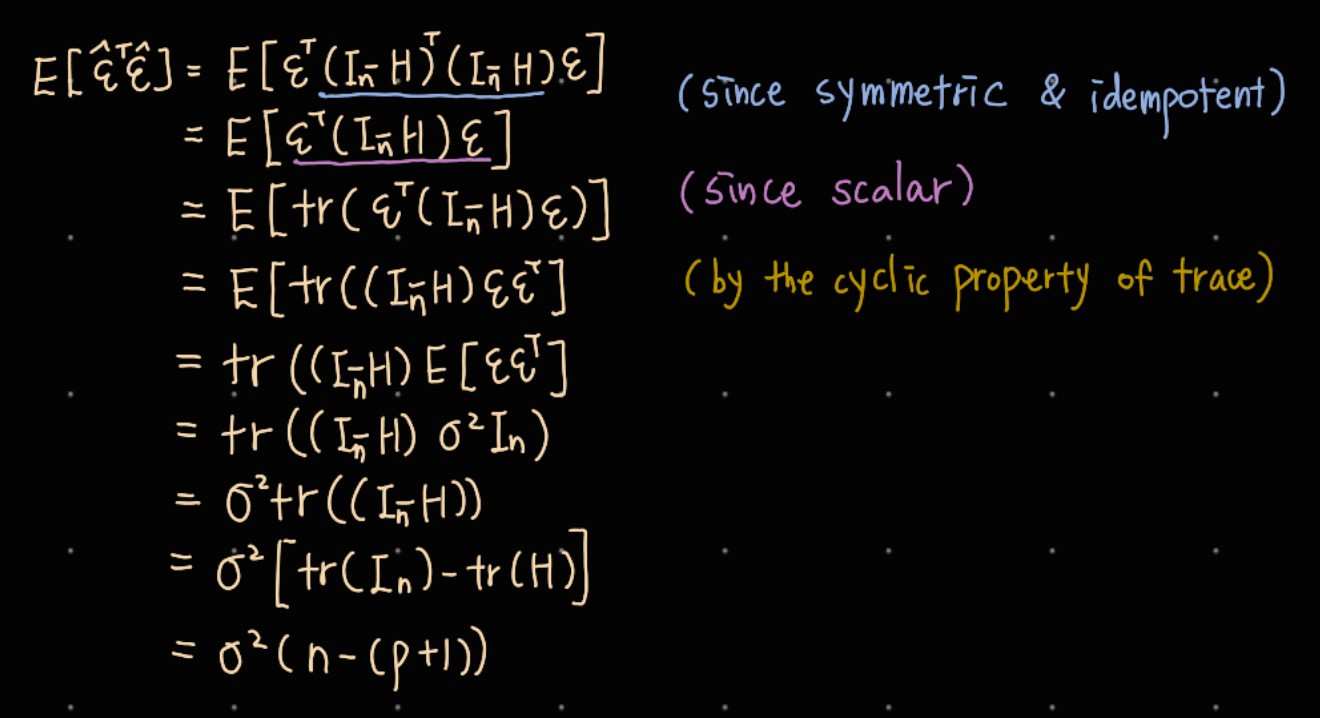 E[ε̂ᵀε̂] = E[εᵀ(Iₙ-H)ᵀ(Iₙ-H)ε] (since symmetric & idempotent)
= E[εᵀ(Iₙ-H)ε]
(since scalar)
= E[tr(εᵀ(Iₙ-H)ε)]
= E[tr((Iₙ-H)εεᵀ] (by the cyclic property of trace)
= tr((Iₙ-H)E[εεᵀ]
= tr((Iₙ-H) σ²Iₙ)
= σ²tr((Iₙ-H))
= σ²[tr(Iₙ)-tr(H)]
= σ²(n-(p+1))